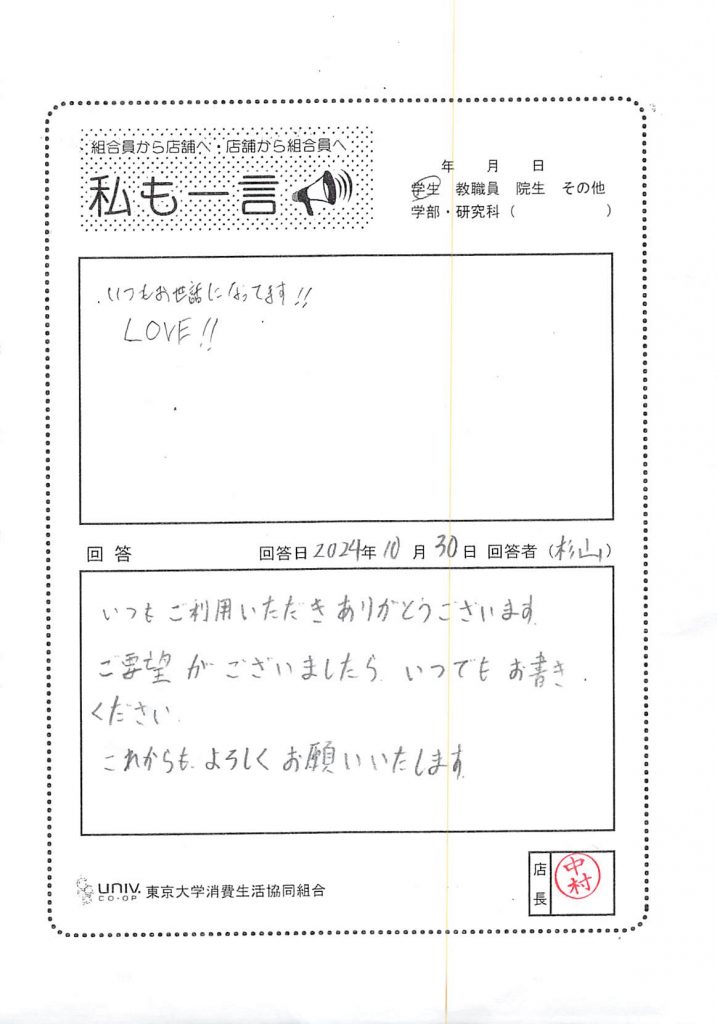 組合員から店舗へ・店舗から組合員へ
私も一言
年 月 日
学生 教職員 院生 その他
学部・研究科 ( )
いつもお世話になってます!!
LOVE!!
回答 回答日 2024年 10月 30日 回答者 (杉山)
いつもご利用いただきありがとうございます。
ご要望がございましたら、いつでもお書き
ください。
これからも、よろしくお願いいたします。
店長
中村
UNIV. CO-OP 東京大学消費生活協同組合